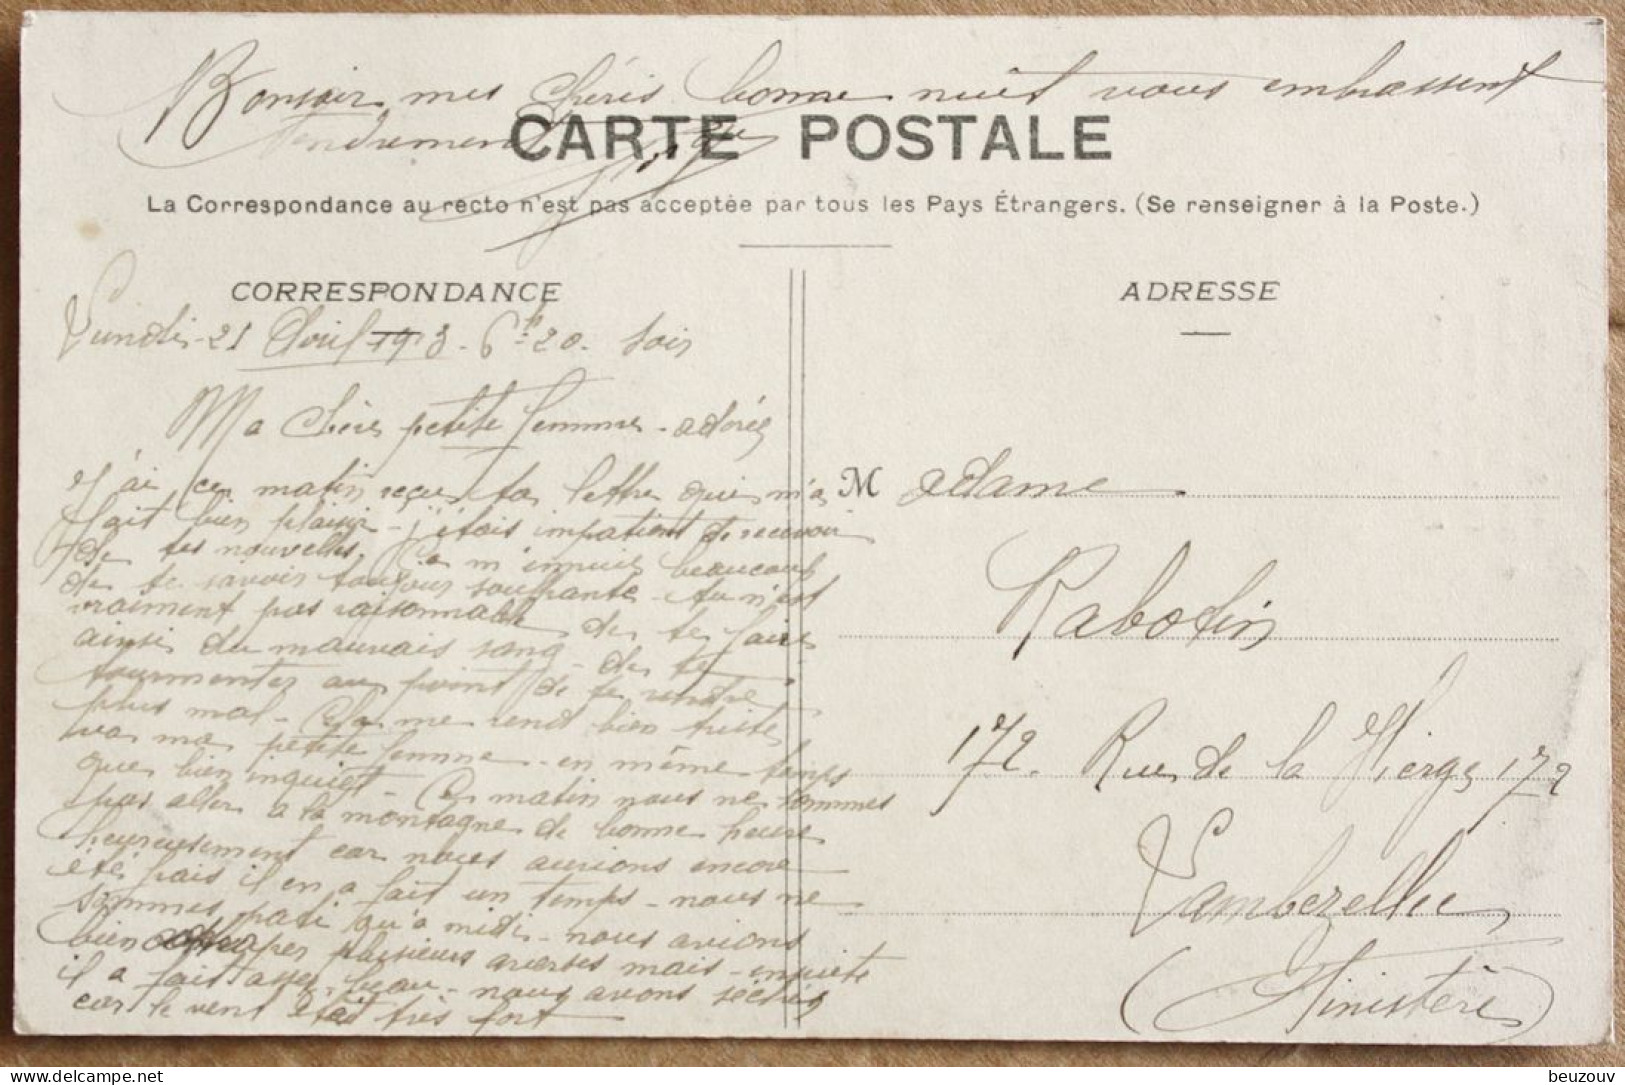 Bonsoir mes chéris bonne nuit vous embrassent
tendrement
CARTE POSTALE
La Correspondance au recto n'est pas acceptée par tous les Pays Étrangers. (Se renseigner à la Poste.)
CORRESPONDANCE
Lundi 21 Avril 1913 - 6h 20 - soir
Ma chère petite femme - adorée
J'ai ce matin reçu ta lettre qui m'a
fait bien plaisir - j'étais impatient de recevoir
de tes nouvelles. Ça m'ennuie beaucoup
de te savoir toujours souffrante - tu n'est
vraiment pas raisonnable de te faire
ainsi du mauvais sang - de te
tourmenter au point de te rendre
plus mal - Cela me rend bien triste
va ma petite femme - en même temps
que bien inquiet - Ce matin nous ne sommes
pas aller a la montagne de bonne heure
heureusement car nous aurions encore
été pais il en a fait un temps - nous ne
sommes parti qu'a midi - nous avions
bien attraper plusieurs averses mais - ensuite
il a fait assez beau - nous avons séchés
car le vent était très fort
ADRESSE
Madame
Rabotin
172. Rue de la Vierge 172
Lambezellec
(Finistère)
delcampe.net
beuzouv